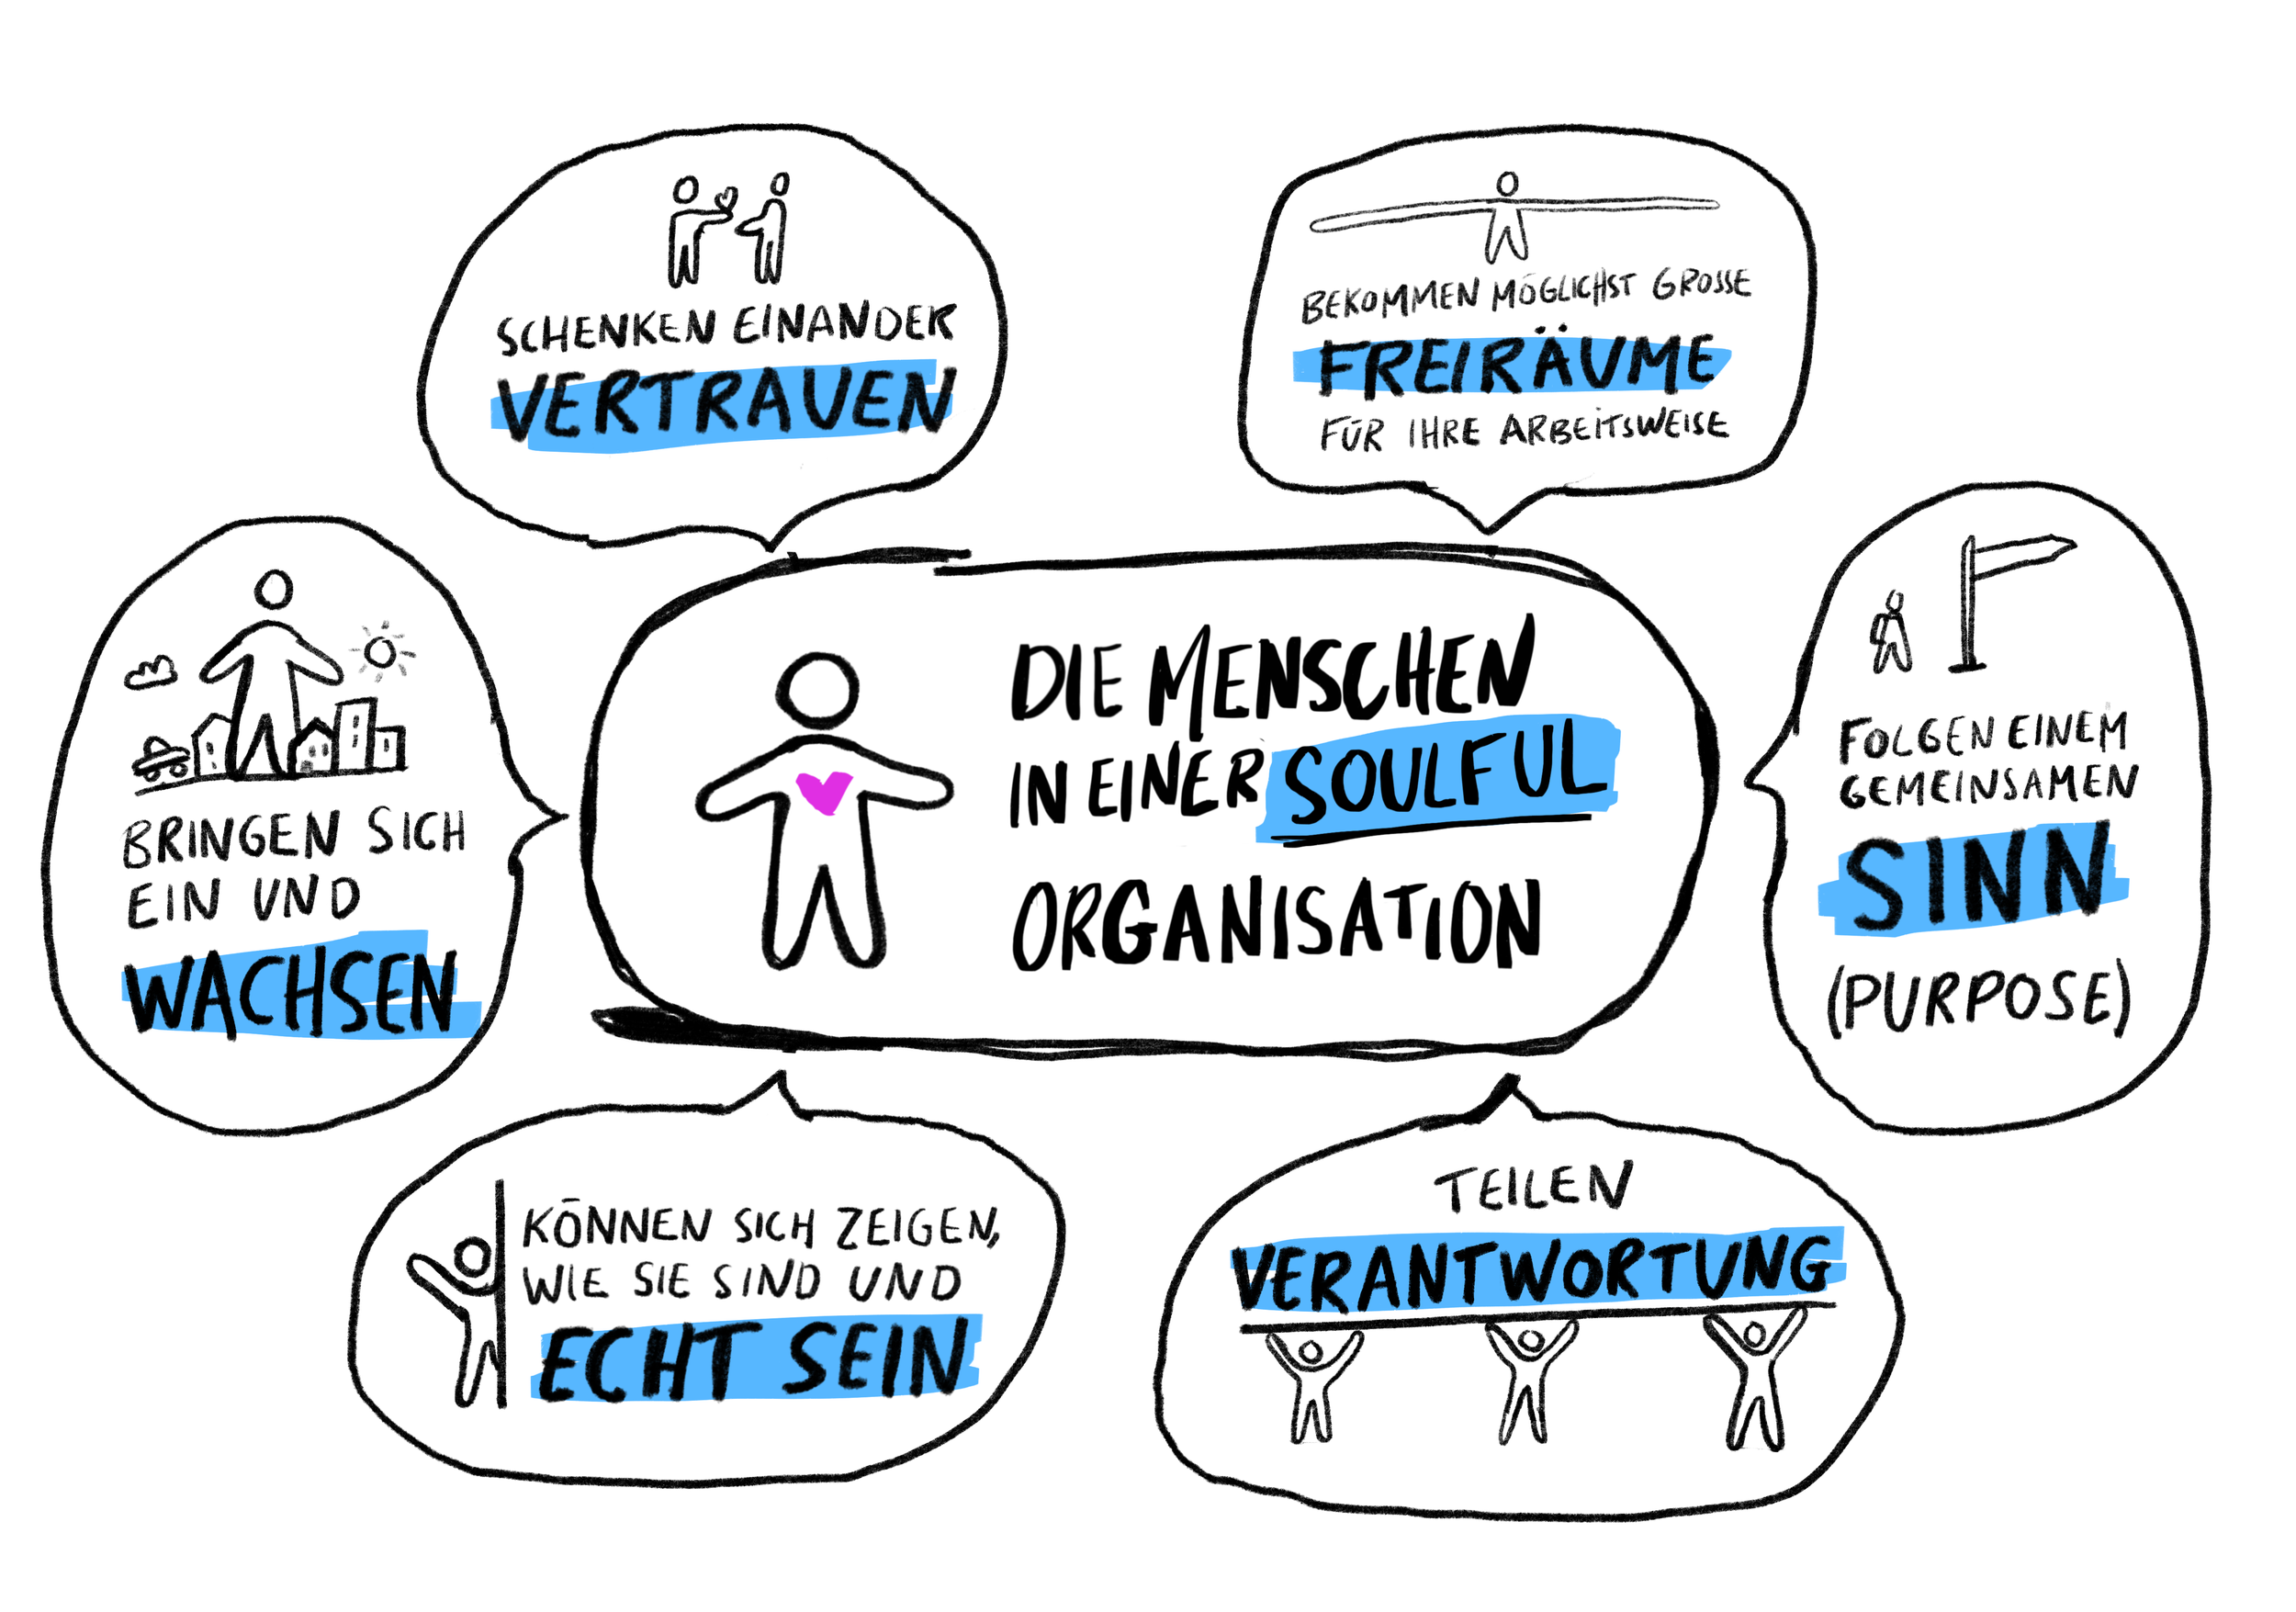 SCHENKEN EINANDER
VERTRAUEN
BEKOMMEN MÖGLICHST GROSSE
FREIRÄUME
FÜR IHRE ARBEITSWEISE
BRINGEN SICH
EIN UND
WACHSEN
DIE MENSCHEN
IN EINER SOULFUL
ORGANISATION
FOLGEN EINEM
GEMEINSAMEN
SINN
(PURPOSE)
KÖNNEN SICH ZEIGEN,
WIE SIE SIND UND
ECHT SEIN
TEILEN
VERANTWORTUNG